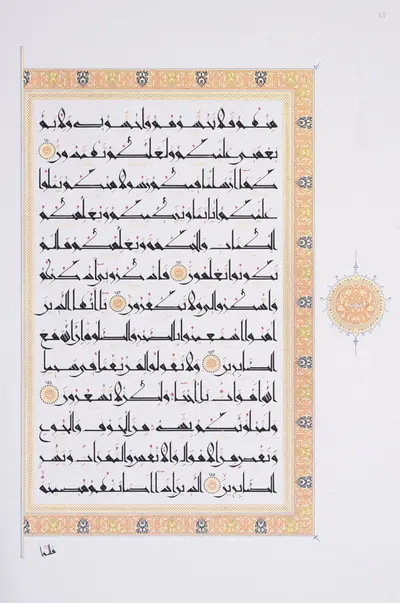 منهم فلا تخشوهم واخشوني ولاتم
نعمتي عليكم ولعلكم تهتدون
كما ارسلنا فيكم رسولا منكم يتلوا
عليكم اياتنا ويزكيكم ويعلمكم
الكتاب والحكمة ويعلمكم ما لم
تكونوا تعلمون فاذكروني اذكركم
واشكروا لي ولا تكفرون يا ايها الذين
امنوا استعينوا بالصبر والصلوة ان الله مع
الصابرين ولا تقولوا لمن يقتل في سبيل
الله اموات بل احياء ولكن لا تشعرون
ولنبلونكم بشيء من الخوف والجوع
ونقص من الاموال والانفس والثمرات وبشر
الصابرين الذين اذا اصابتهم مصيبة
قالوا